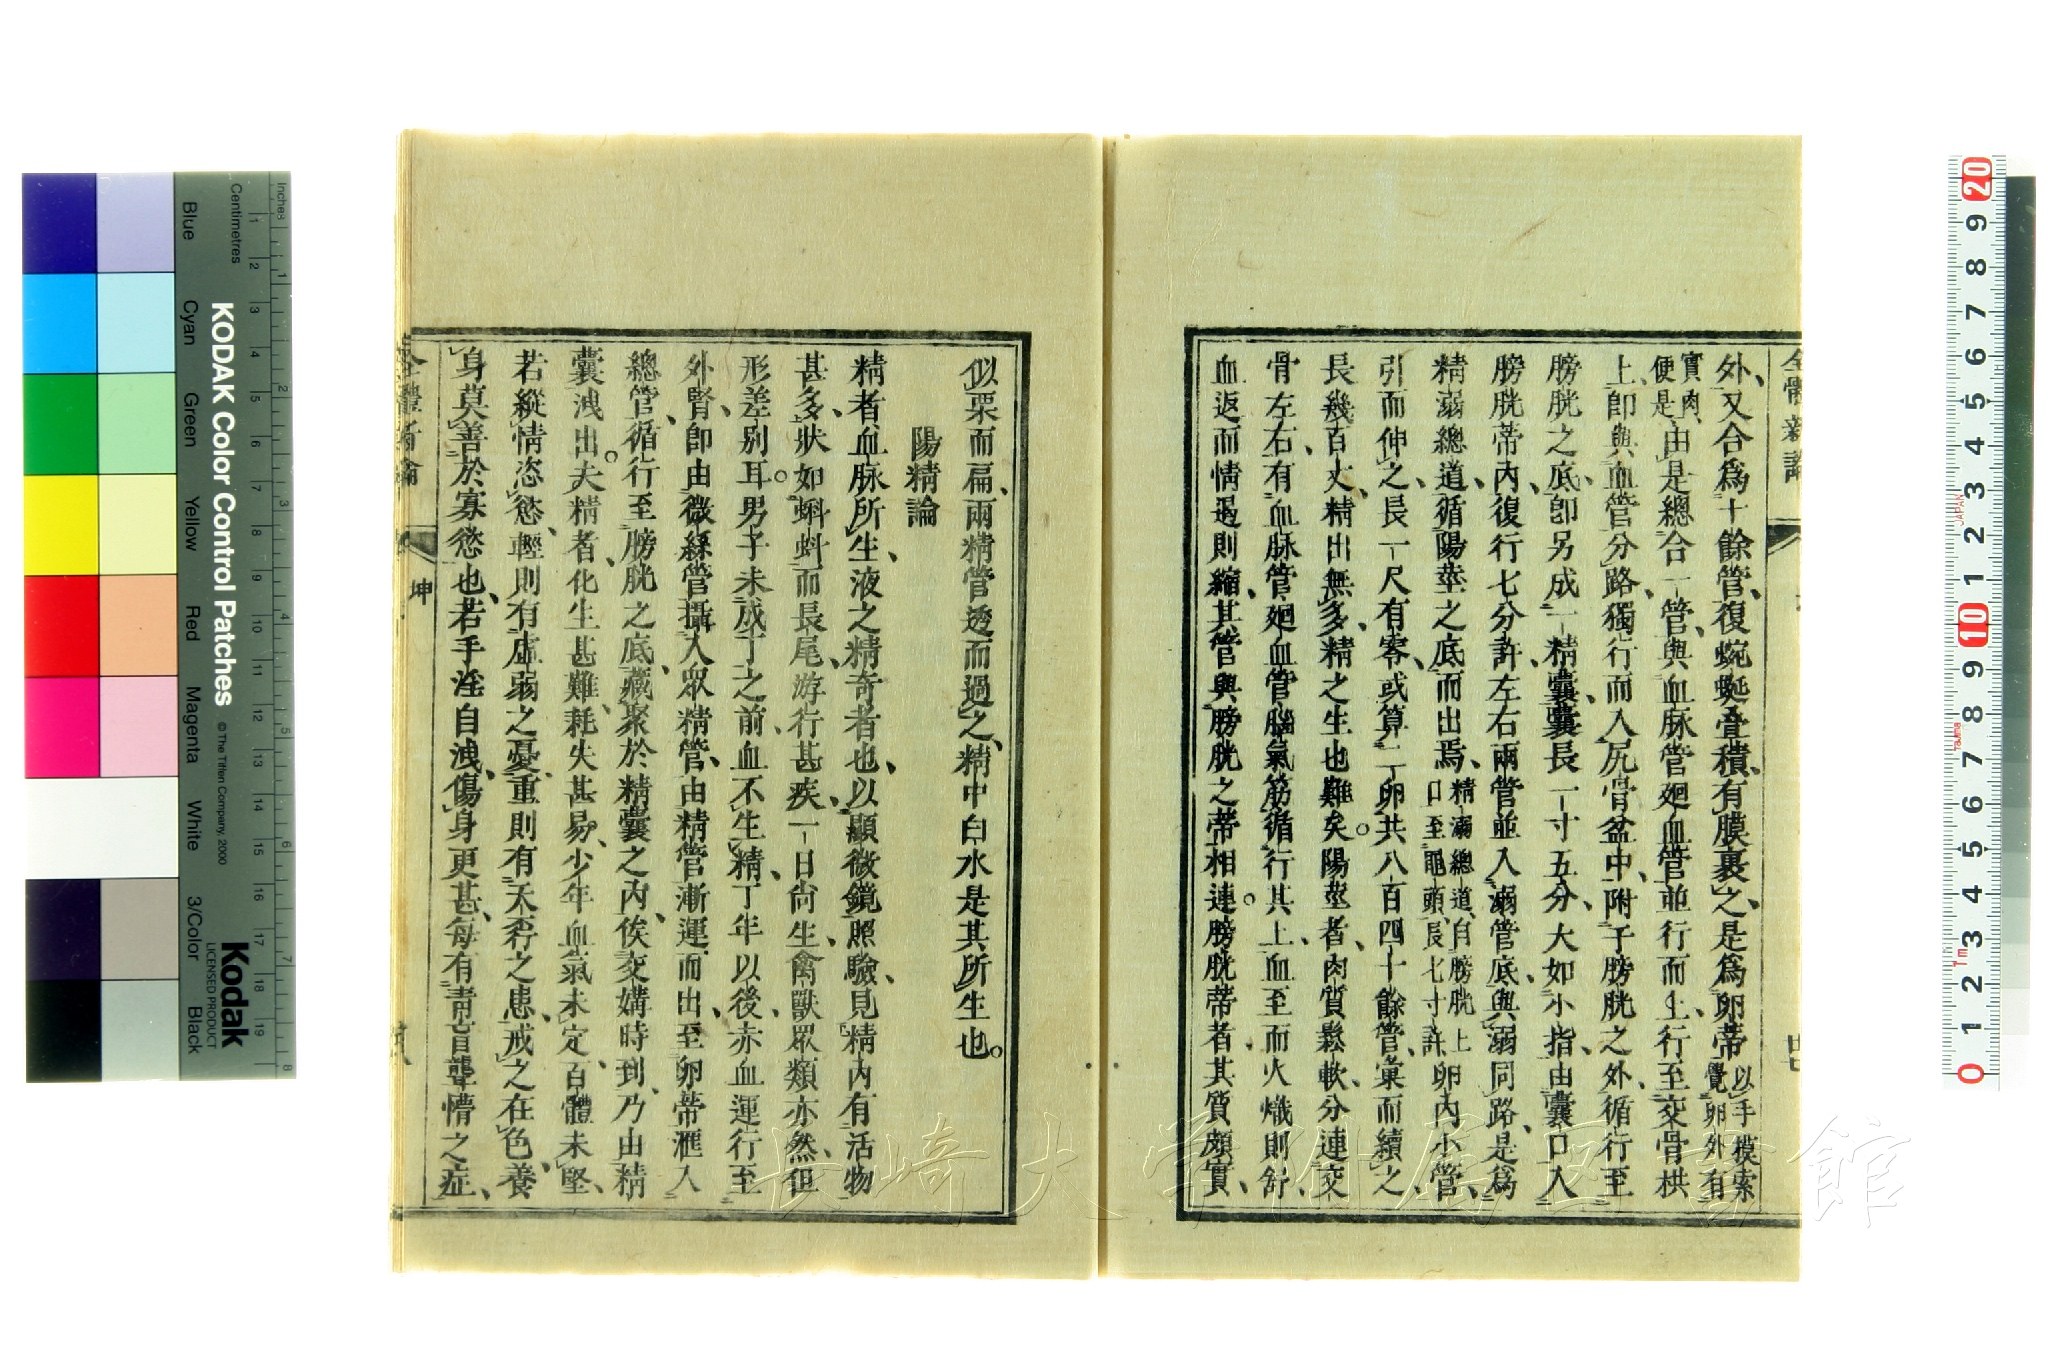 全體新論
外、又合爲十餘管、復蜿蜒疊積、有膜裹之、是爲卵蒂以手摸索覺卵外有
實肉便是、由是總合一管、與血脉管廻血管並行而上行至交骨拱
上、卽與血管分路、獨行而入尻骨盆中、附于膀胱之外、循行至
膀胱之底、卽另成一精囊、囊長一寸五分、大如小指、由囊口入
膀胱蒂內、復行七分許、左右兩管並入溺管底、與溺同路、是爲
精溺總道、循陽莖之底而出焉、精溺總道、自膀胱上口至龜頭、長七寸許、卵內小管、
引而伸之、長一尺有零、或算一卵共八百四十餘管、彙而續之
長幾百丈、精出無多、多精之生也難矣。陽莖者、肉質鬆軟、分連交
骨左右、有血脉管、廻血管、腦氣筋、循行其上、血至而火熾則舒、
血返而情過則縮、其管與膀胱之蒂相連。膀胱蒂者、其質頗實、
似栗而扁、兩精管透而過之、精中白水是其所生也。
陽精論
精者血脉所生、液之精奇者也、以顯微鏡照驗、見精內有活物
甚多、狀如蝌蚪而長尾、游行甚疾、一日尙生、禽獸眾類亦然、但
形差別耳。男子未成丁之前、血不生精、丁年以後、赤血運行至
外腎、卽由微絲管攝入眾精管、由精管漸運而出、至卵蒂滙入
總管、循行至膀胱之底、藏聚於精囊之內、俟交媾時到、乃由精
囊洩出。夫精者、化生甚難、耗失甚易、少年血氣未定、百體未堅、
若縱情恣慾、輕則有虛弱之憂、重則有夭夯之患、戒之在色、養
身莫善於寡慾也、若手淫自洩、傷身更甚、每有青盲聾憒之症、
全體新論
坤